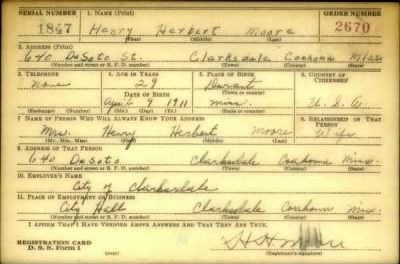 SERIAL NUMBER 1. NAME (Print) ORDER NUMBER
1847 Henry Herbert Moore 2670
(First) (Middle) (Last)
2. ADDRESS (Print)
640 DeSoto St. Clarksdale Coahoma Miss
(Number and street or R. F. D. number) (Town) (County) (State)
3. TELEPHONE 4. AGE IN YEARS 5. PLACE OF BIRTH 6. COUNTRY OF CITIZENSHIP
None 29 Durant
DATE OF BIRTH (Town or county)
April 9 1911 Miss. U. S. A.
(Exchange) (Number) (Mo.) (Day) (Yr.) (State or country)
7. NAME OF PERSON WHO WILL ALWAYS KNOW YOUR ADDRESS 8. RELATIONSHIP OF THAT PERSON
Mrs. Henry Herbert Moore Wife
(Mr., Mrs., Miss) (First) (Middle) (Last)
9. ADDRESS OF THAT PERSON
640 DeSoto Clarksdale Coahoma Miss.
(Number and street or R. F. D. number) (Town) (County) (State)
10. EMPLOYER'S NAME
City of Clarksdale
11. PLACE OF EMPLOYMENT OR BUSINESS
City Hall Clarksdale Coahoma Miss.
(Number and street or R. F. D. number) (Town) (County) (State)
I AFFIRM THAT I HAVE VERIFIED ABOVE ANSWERS AND THAT THEY ARE TRUE.
REGISTRATION CARD
D. S. S. Form 1 (over) H. H. Moore
(Registrant's signature)